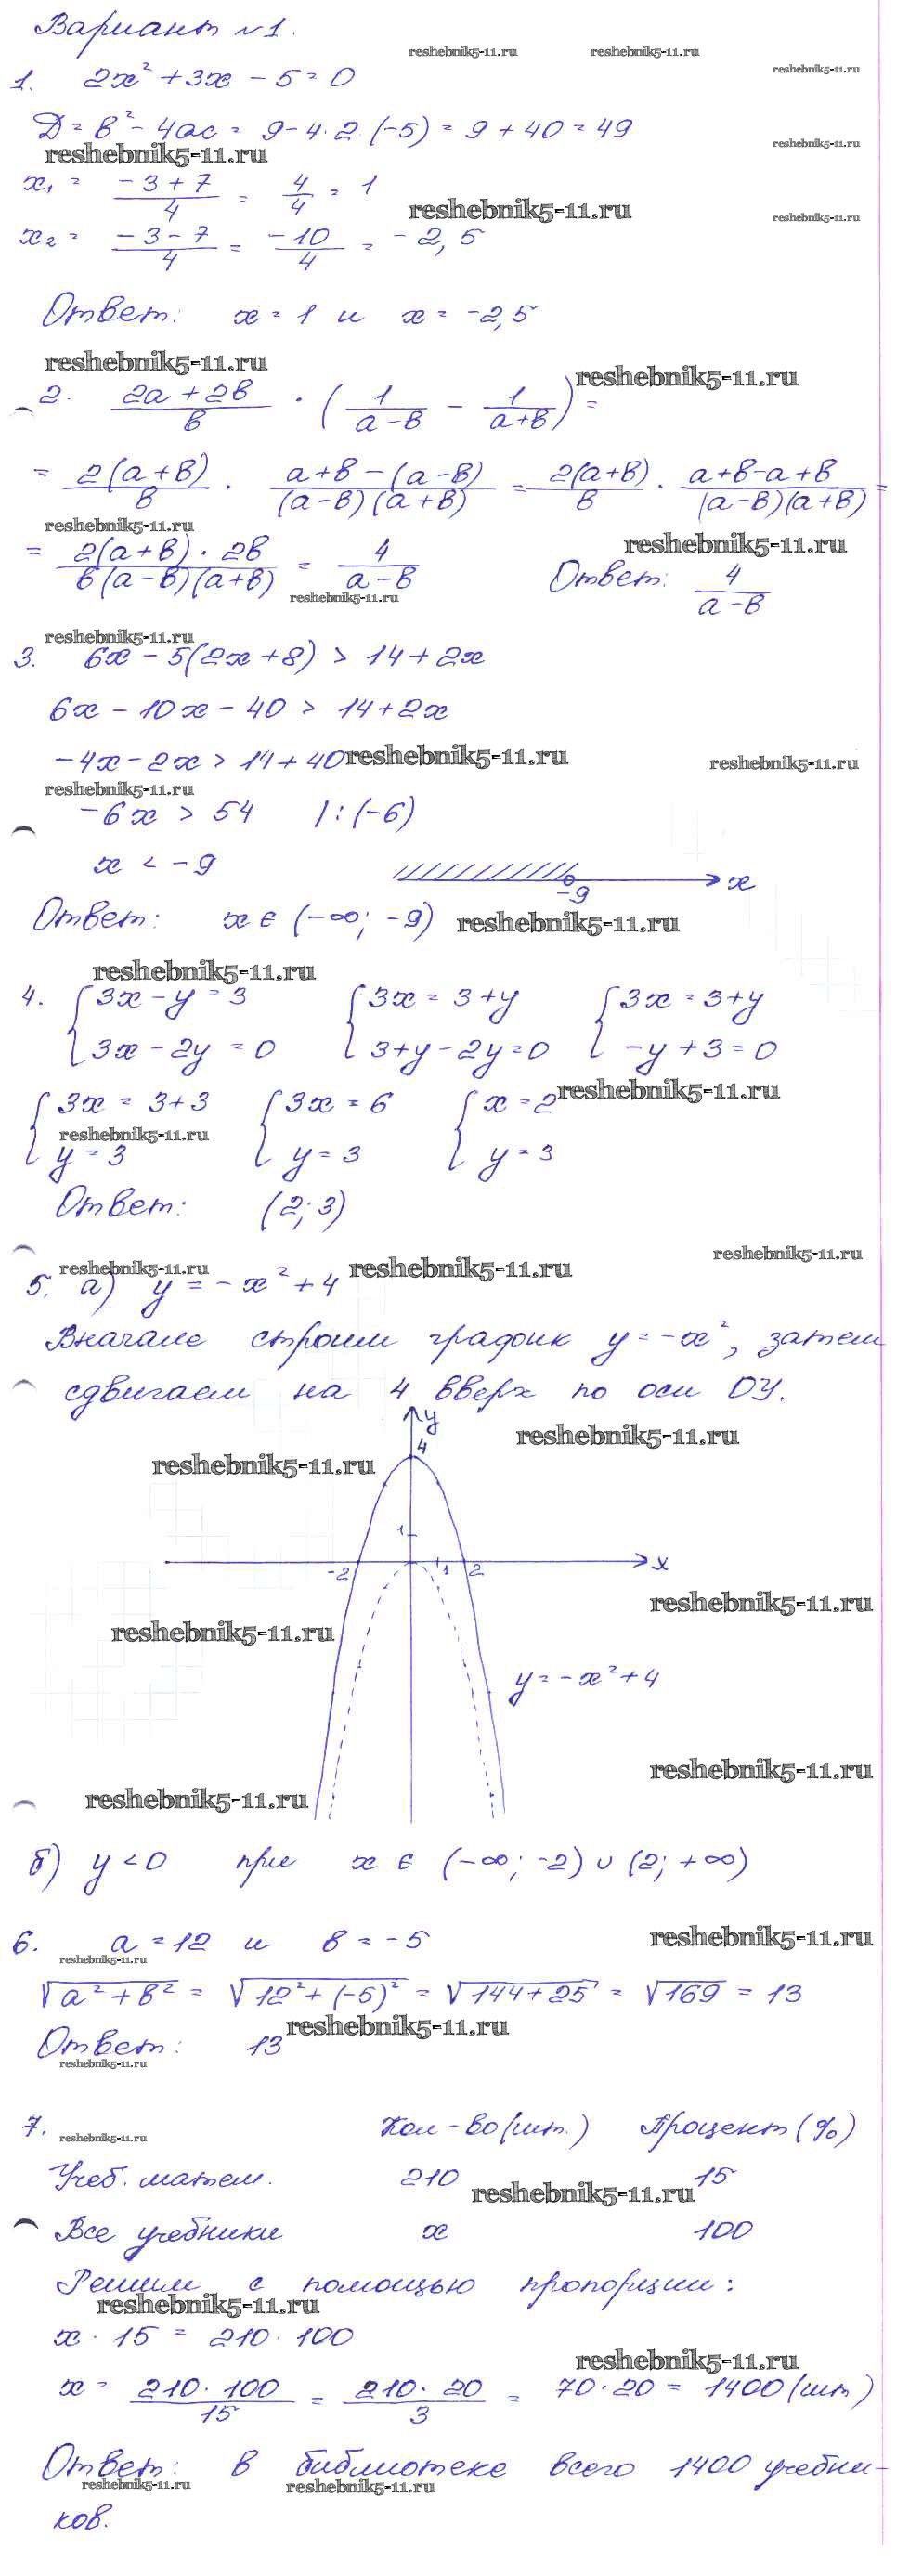 Вариант №1.
reshebnik5-11.ru reshebnik5-11.ru reshebnik5-11.ru
1. 2x² + 3x - 5 = 0
D = b² - 4ac = 9 - 4·2·(-5) = 9 + 40 = 49
reshebnik5-11.ru reshebnik5-11.ru
x₁ = (-3+7)/4 = 4/4 = 1
reshebnik5-11.ru reshebnik5-11.ru
x₂ = (-3-7)/4 = -10/4 = -2,5
Ответ: x = 1 и x = -2,5
reshebnik5-11.ru reshebnik5-11.ru
2. (2a+2b)/b · (1/(a-b) - 1/(a+b)) =
= 2(a+b)/b · (a+b-(a-b))/((a-b)(a+b)) = 2(a+b)/b · (a+b-a+b)/((a-b)(a+b)) =
reshebnik5-11.ru reshebnik5-11.ru
= (2(a+b)·2b)/(b(a-b)(a+b)) = 4/(a-b) Ответ: 4/(a-b)
reshebnik5-11.ru
reshebnik5-11.ru
3. 6x - 5(2x+8) > 14 + 2x
6x - 10x - 40 > 14 + 2x
-4x - 2x > 14 + 40 reshebnik5-11.ru reshebnik5-11.ru
reshebnik5-11.ru
-6x > 54 |:(-6)
x < -9
-9 x
Ответ: x ∈ (-∞; -9) reshebnik5-11.ru
reshebnik5-11.ru
4. {3x - y = 3 {3x = 3+y {3x = 3+y
{3x - 2y = 0 {3+y-2y=0 {-y+3=0
reshebnik5-11.ru
{3x = 3+3 {3x = 6 {x = 2
reshebnik5-11.ru
{y = 3 {y = 3 {y = 3
Ответ: (2; 3)
reshebnik5-11.ru reshebnik5-11.ru reshebnik5-11.ru
5. а) y = -x² + 4
Вначале строим график y = -x², затем
сдвигаем на 4 вверх по оси OY.
y
4
reshebnik5-11.ru
reshebnik5-11.ru
1
-2 1 2 x
reshebnik5-11.ru
reshebnik5-11.ru
y = -x² + 4
reshebnik5-11.ru
reshebnik5-11.ru
б) y < 0 при x ∈ (-∞; -2) ∪ (2; +∞)
6. a = 12 и b = -5 reshebnik5-11.ru
reshebnik5-11.ru
√(a²+b²) = √(12²+(-5)²) = √(144+25) = √169 = 13
reshebnik5-11.ru
Ответ: 13
reshebnik5-11.ru
7. Кол-во(шт.) Процент(%)
reshebnik5-11.ru
Учеб. матем. 210 15
reshebnik5-11.ru
Все учебники x 100
Решим с помощью пропорции:
reshebnik5-11.ru
x · 15 = 210 · 100
reshebnik5-11.ru
x = (210·100)/15 = (210·20)/3 = 70·20 = 1400(шт)
Ответ: в библиотеке всего 1400 учебни-
reshebnik5-11.ru reshebnik5-11.ru
ков.